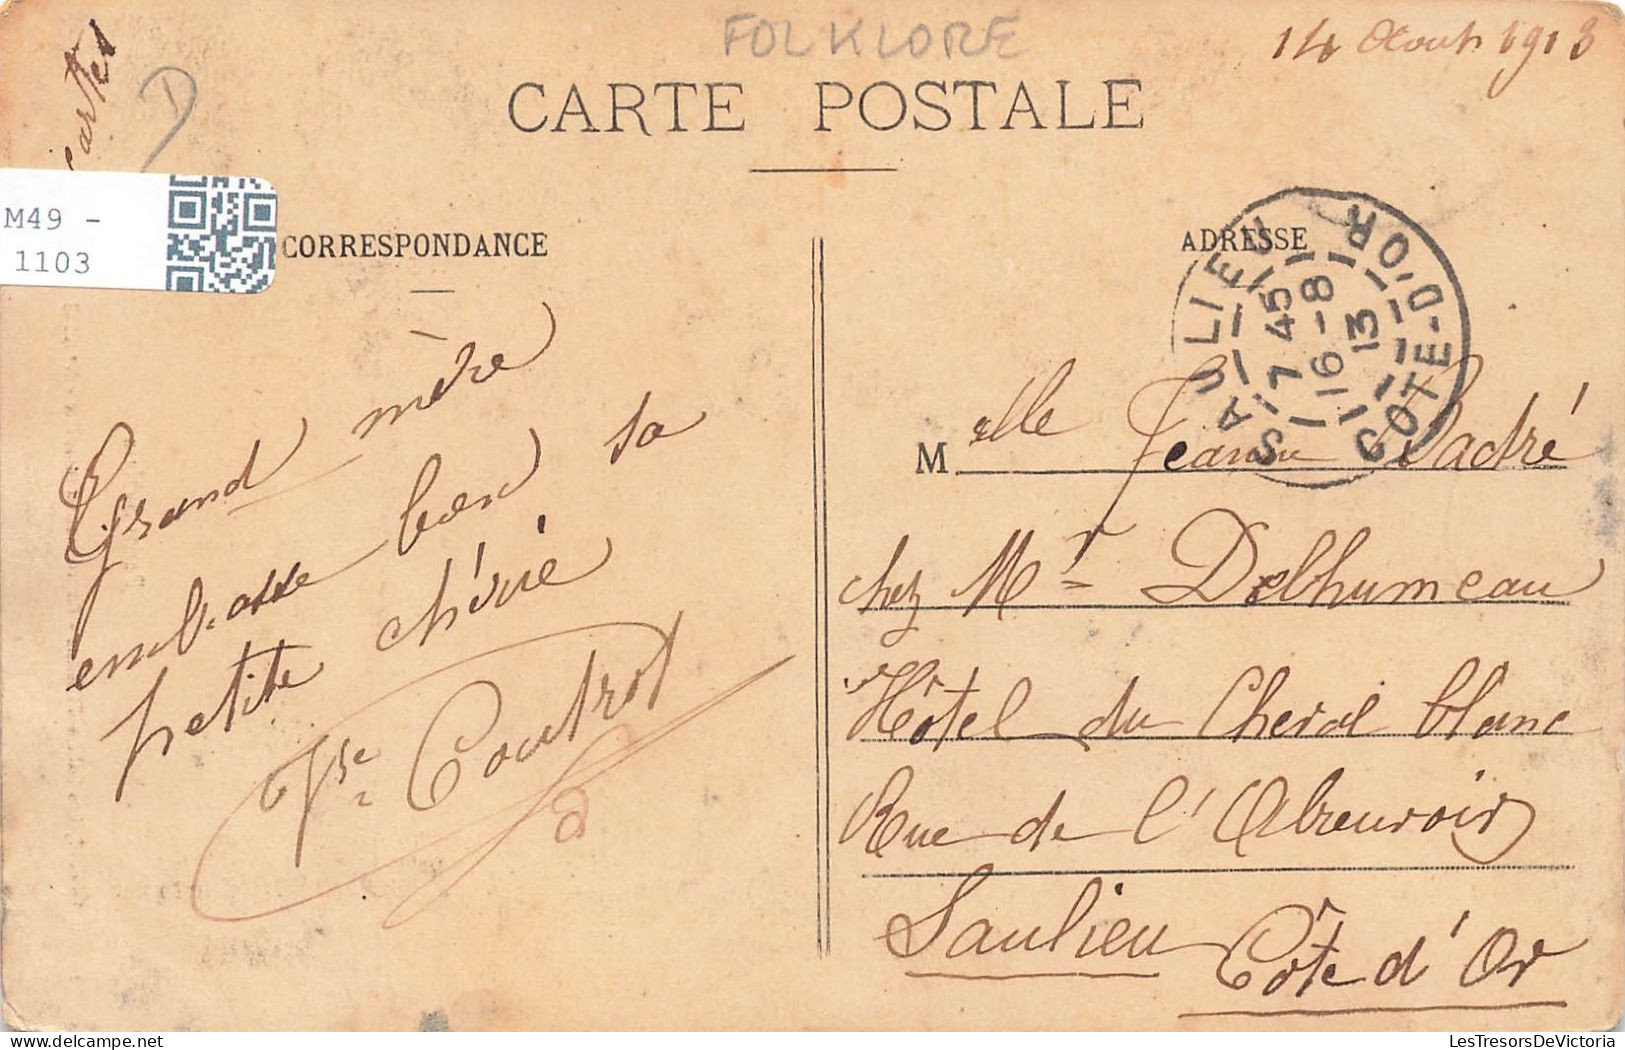 FOLKLORE
14 Aout 1913
cartes
D
CARTE POSTALE
M49 -
1103
CORRESPONDANCE
ADRESSE
SAULIEU
COTE-D'OR
7 45
16 - 8
13
Grand mère
embrasse bien sa
petite chérie
Vve Coutrot
Melle Jeanne
chez Mr Delhumeau
Hôtel du Cheval blanc
Rue de l'Abreuvoir
Saulieu Côte d'Or
LesTresorsDeVictoria